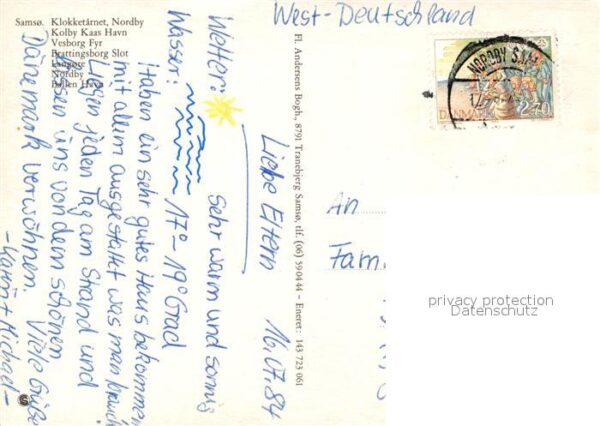 Samsø. Klokketårnet, Nordby
Kolby Kaas Havn
Vesborg Fyr
Brattingsborg Slot
Langøre
Nordby
Ballen Havn
Fl. Andersens Bogh., 8791 Tranebjerg Samsø, tlf. (06) 59 04 44 – Eneret: 143 723 061
West-Deutschland
NORDBY
DANMARK
2.70
16.07.84
Liebe Eltern
Wetter: sehr warm und sonnig
Wasser: 17°-19° Grad
Haben ein sehr gutes Haus bekommen
mit allem ausgestattet was man brauch
liegen jeden Tag am Strand und
lassen uns von dem schönen
Dänemark verwöhnen. Viele Grüße
- Karin + Michael -
An
Fam.
privacy protection
Datenschutz